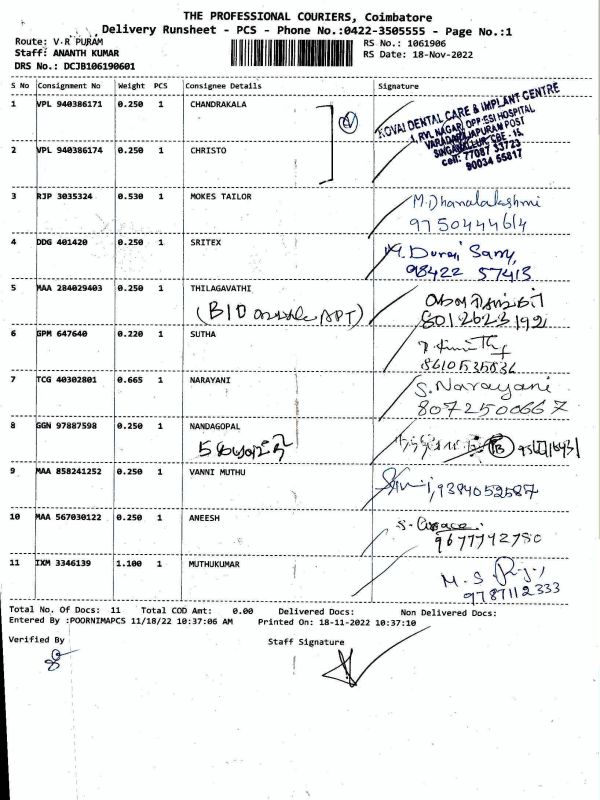 THE PROFESSIONAL COURIERS, Coimbatore
Delivery Runsheet - PCS - Phone No.:0422-3505555 - Page No.:1
Route: V-R PURAM
Staff: ANANTH KUMAR
DRS No.: DCJB106190601
RS No.: 1061906
RS Date: 18-Nov-2022
S No Consignment No Weight PCS Consignee Details Signature
1 VPL 940386171 0.250 1 CHANDRAKALA
KOVAI DENTAL CARE & IMPLANT CENTRE
1, RVL NAGAR, OPP:ESI HOSPITAL
VARADARAJAPURAM POST
SINGANALLUR, CBE - 15.
Cell: 77087 33723
90034 65817
2 VPL 940386174 0.250 1 CHRISTO
3 RJP 3035324 0.530 1 MOKES TAILOR M.Dhanalakshmi
9750444614
4 DDG 401420 0.250 1 SRITEX M. Durai Samy
98422 57413
5 MAA 284029403 0.250 1 THILAGAVATHI
8012623192
6 GPM 647640 0.220 1 SUTHA
8610535836
7 TCG 40302801 0.665 1 NARAYANI S.Narayani
8072500667
8 GGN 97887598 0.250 1 NANDAGOPAL
9 MAA 858241252 0.250 1 VANNI MUTHU 9384052587
10 MAA 567030122 0.250 1 ANEESH
9677742750
11 IXM 3346139 1.100 1 MUTHUKUMAR M.S.
9787112333
Total No. Of Docs: 11 Total COD Amt: 0.00 Delivered Docs: Non Delivered Docs:
Entered By :POORNIMAPCS 11/18/22 10:37:06 AM Printed On: 18-11-2022 10:37:10
Verified By Staff Signature